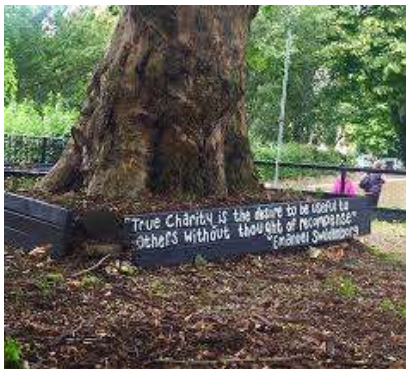 "True Charity is the desire to be useful to
others without thought of recompense"
"Emanuel Swedenborg